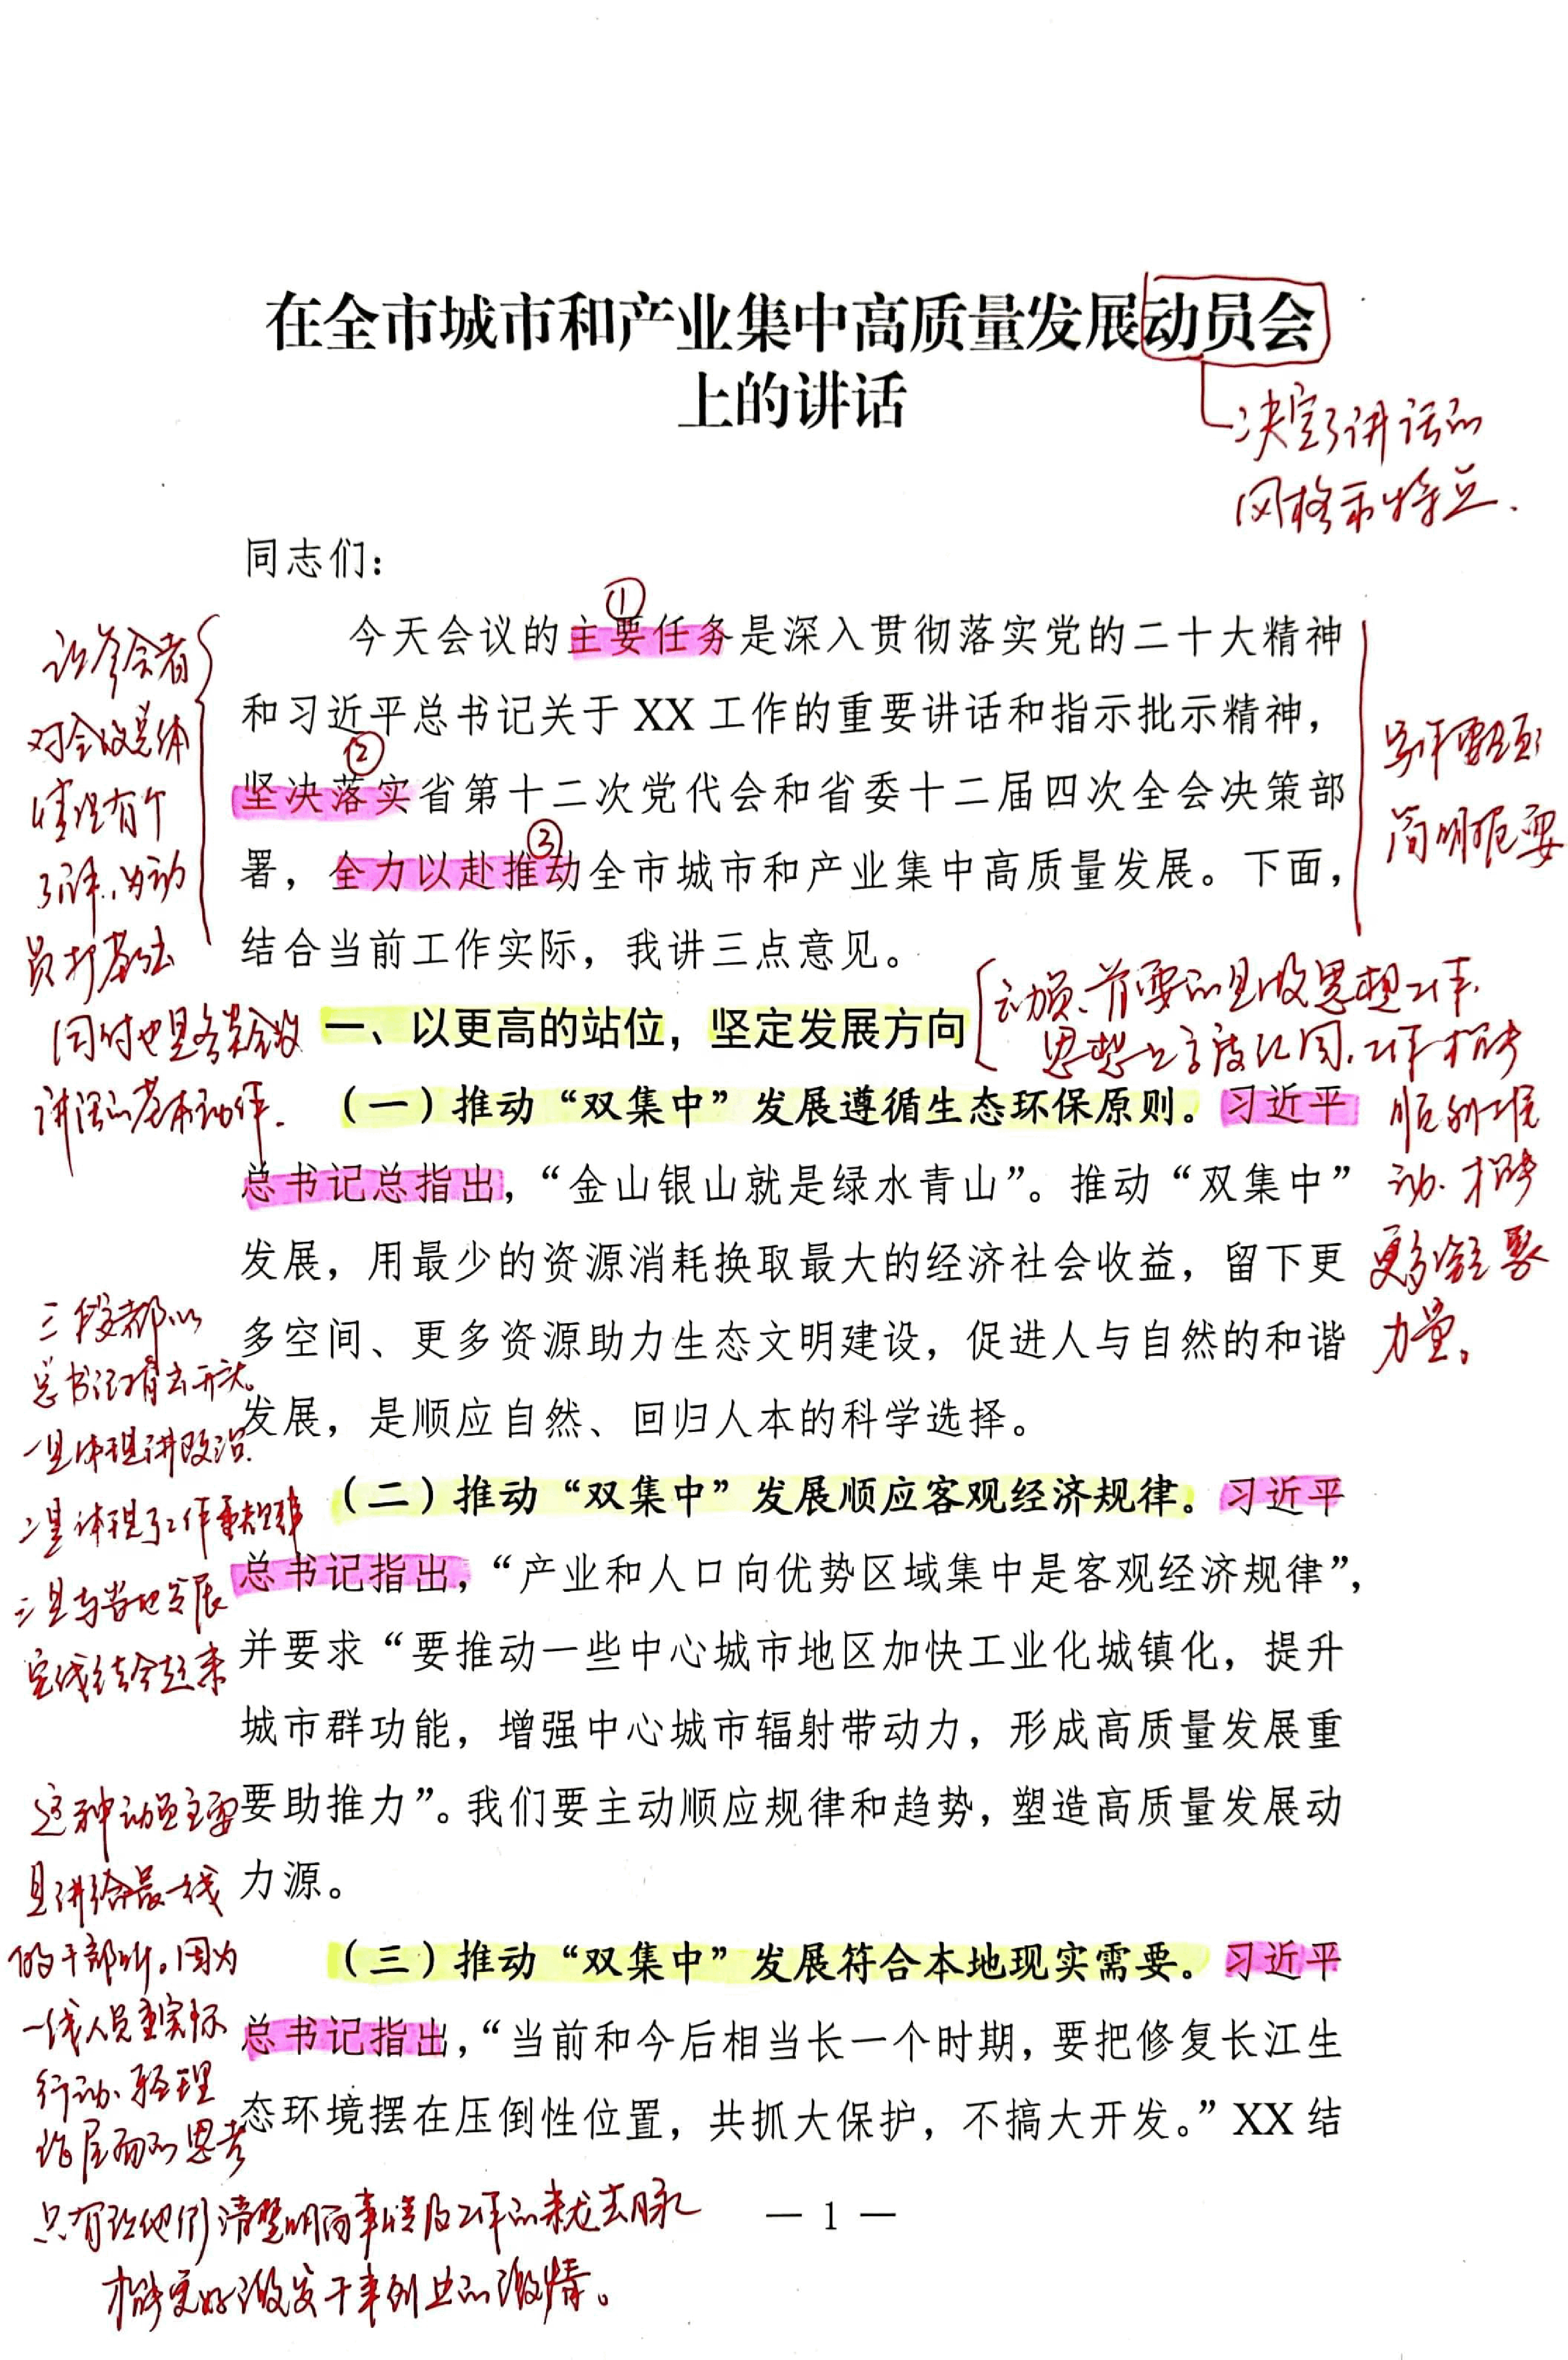 在全市城市和产业集中高质量发展动员会
上的讲话
决定了讲话的
风格和特点.
同志们：
①
今天会议的主要任务是深入贯彻落实党的二十大精神
和习近平总书记关于 XX 工作的重要讲话和指示批示精神，
②
坚决落实省第十二次党代会和省委十二届四次全会决策部
③
署，全力以赴推动全市城市和产业集中高质量发展。下面，
结合当前工作实际，我讲三点意见。
让参会者
对会议总体
情况有个
了解，为动
员打基础
同时也是各类会议
讲话的基本动作.
简明扼要
一、以更高的站位，坚定发展方向
动员、首要的是做思想工作.
思想上高度认同.工作才能
顺利推
动.才能
更多凝聚
力量。
（一）推动“双集中”发展遵循生态环保原则。习近平
总书记总指出，“金山银山就是绿水青山”。推动“双集中”
发展，用最少的资源消耗换取最大的经济社会收益，留下更
多空间、更多资源助力生态文明建设，促进人与自然的和谐
发展，是顺应自然、回归人本的科学选择。
三段都以
总书记指出开头。
一是体现讲政治.
二是体现了工作重要性
三是与当地发展
实际结合起来
（二）推动“双集中”发展顺应客观经济规律。习近平
总书记指出，“产业和人口向优势区域集中是客观经济规律”，
并要求“要推动一些中心城市地区加快工业化城镇化，提升
城市群功能，增强中心城市辐射带动力，形成高质量发展重
要助推力”。我们要主动顺应规律和趋势，塑造高质量发展动
力源。
这种动员主要
是讲给最一线
的干部听。因为
一线人员重实际
行动、轻理
论层面的思考
只有让他们清楚明白事情及工作的来龙去脉
才能更好激发干事创业的激情。
（三）推动“双集中”发展符合本地现实需要。习近平
总书记指出，“当前和今后相当长一个时期，要把修复长江生
态环境摆在压倒性位置，共抓大保护，不搞大开发。”XX 结
— 1 —